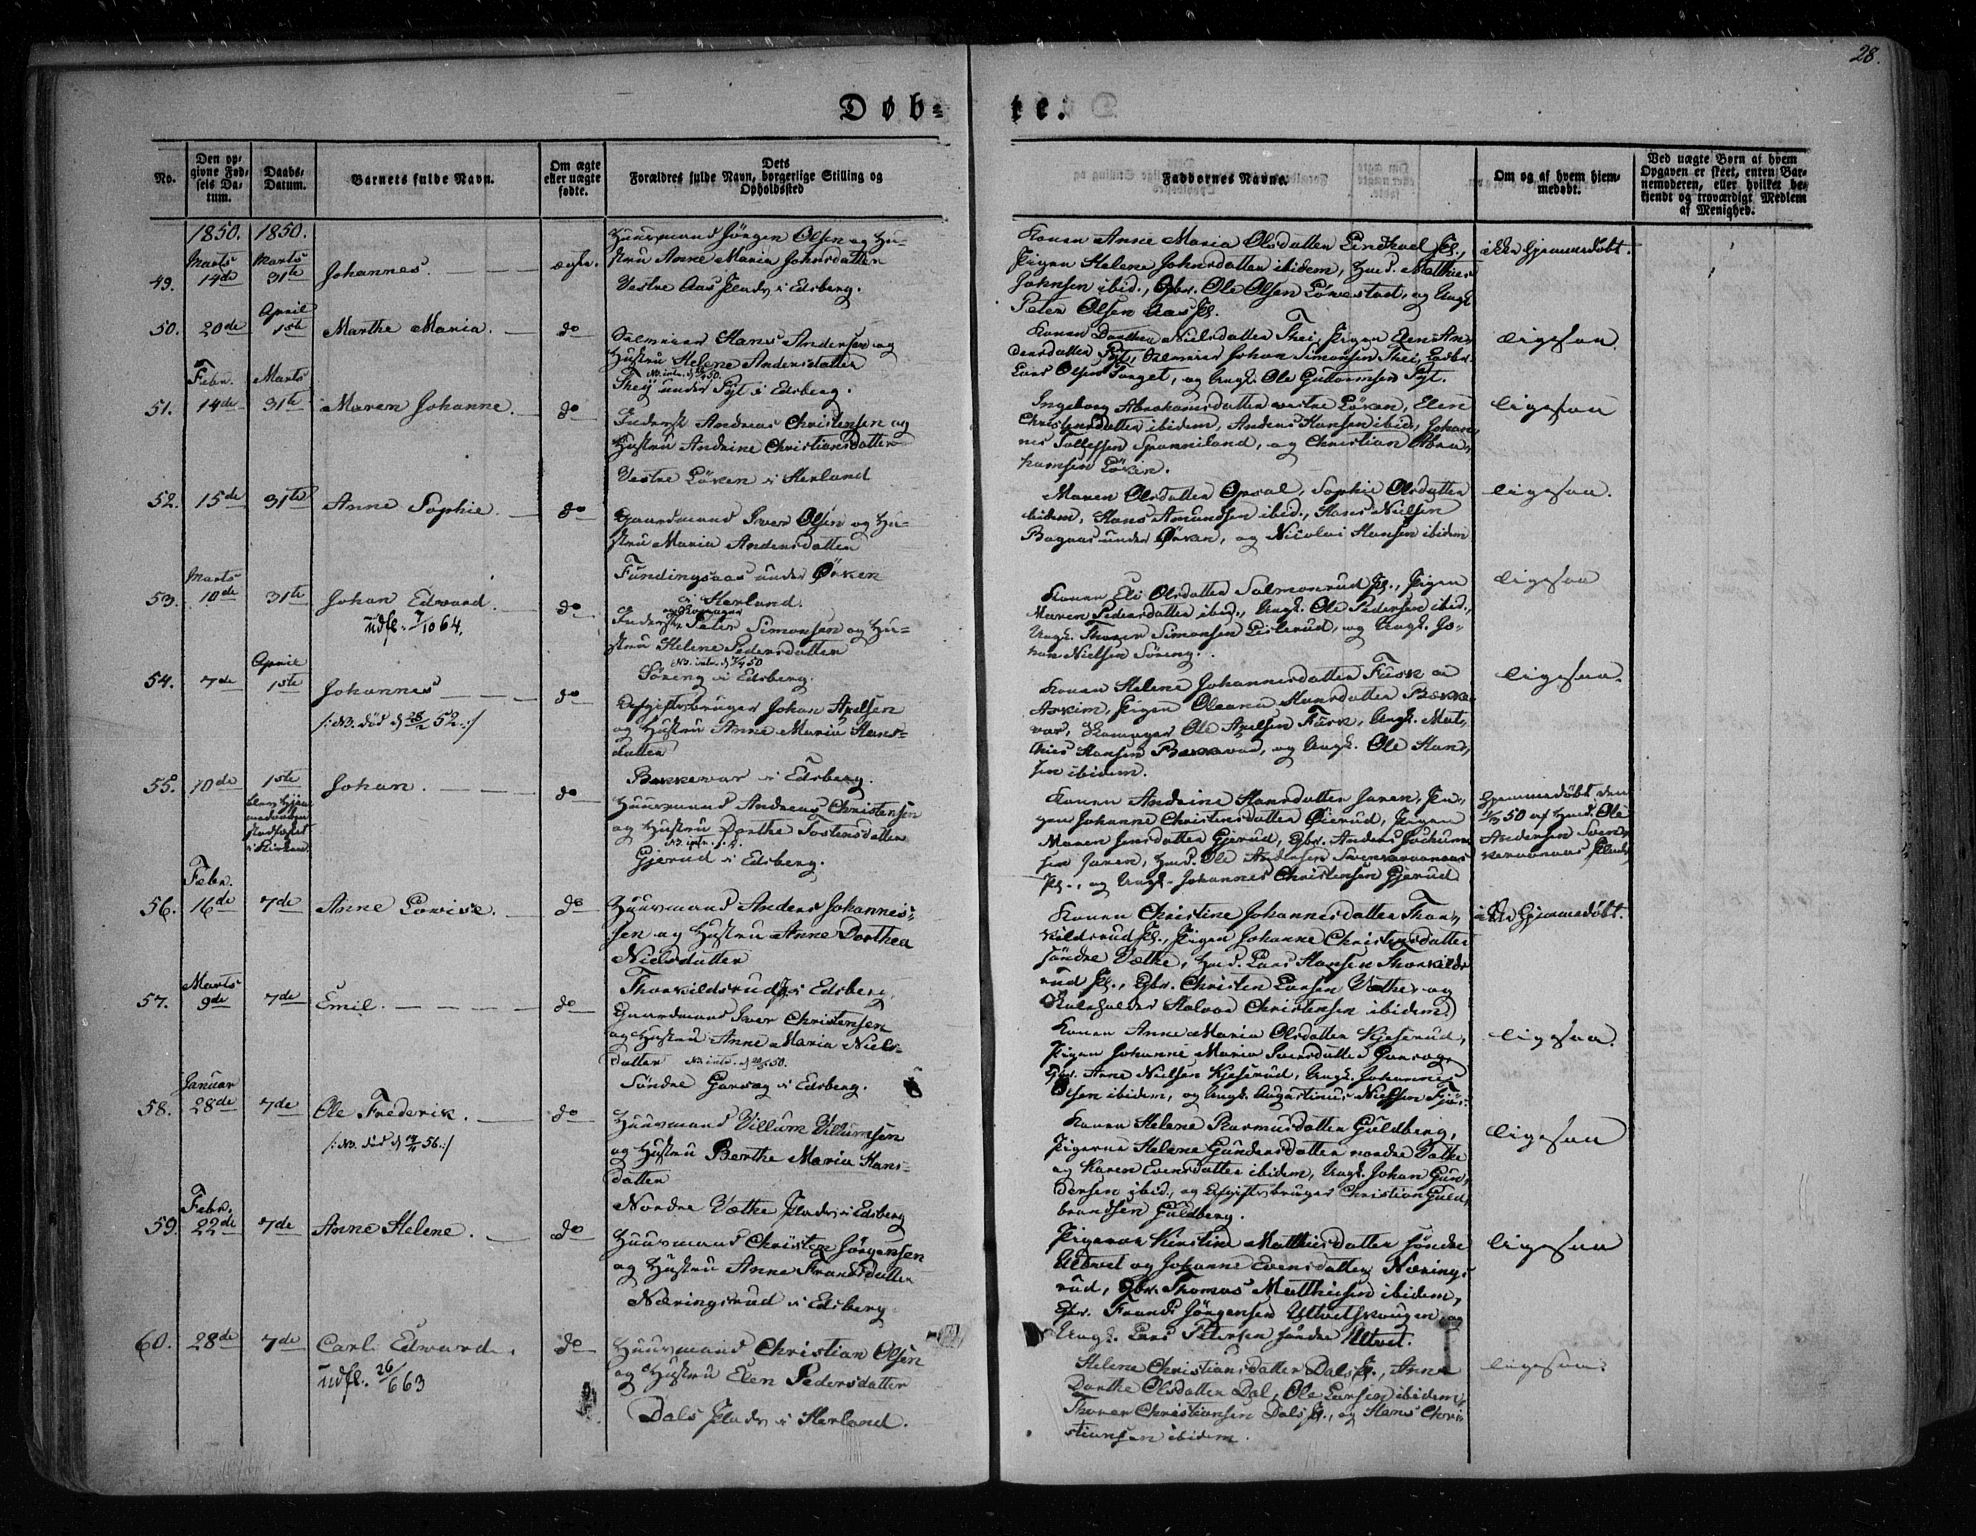 28.
Døb-
te.
No.
Den op-
givne Fød-
sels Da-
tum.
Daabs-
Datum.
Barnets fulde Navn.
Om ægte
eller uægte
fødte.
Dets
Forældres fulde Navn, borgerlige Stilling og
Opholdssted
Faddernes Navne.
Om og af hvem hjem-
medøbt.
Ved uægte Børn af hvem
Opgaven er skeet, enten Bar-
nemoderen, eller hvilket be-
kjendt og troværdigt Medlem
af Menighed.
1850. 1850.
49. Marts 14de
Marts 31te
Johannes.
ægte.
Huusmand Jörgen Olsen og Hu-
stru Anne Maria Johnsdatter
Vestre Aas Plads i Edsberg.
Konen Anne Maria Olsdatter Lindhoel Pl.,
Pigen Helene Johnsdatter ibidem, Husm. Matthies
Johnsen ibid., Gbr. Ole Olsen Lövestad, og Ungk.
Peter Olsen Aas Pl.
ikke hjemmedøbt.
50. 20de
April 1ste
Marthe Maria.
do
Hans Andersen og
Hustru Helene Andersdatter
Thej under Fyl i Edsberg.
Konen Dorthea Nielsdatter Thei, Pigen Elen An-
dersdatter Fyl, Johan Simonsen Thei,
Lars Olsen Torget, og Ungk. Ole Guttormsen Fyl.
ligesaa.
51. Febr. 14de
Marts 31te
Maren Johanne.
do
Inderst Andreas Christensen og
Hustru Andrine Christiansdatter
Vestre Löken i Herland
Ingeborg Abrahamsdatter vestre Löken, Elen
Christensdatter ibidem, Anders Hansen ibid., Johan-
nes Tollefsen Spærniland, og Christian Abra-
hamsen Löken.
ligesaa
52. 15de
31te
Anne Sophie.
do
Gaardmand Iver Olsen og Hu-
stru Maria Andersdatter
Fundingsaas under Örken
i Herland.
Maren Olsdatter Opsal, Sophie Olsdatter
ibidem, Hans Amundsen ibid., Hans Nielsen
Bagaas under Örken, og Nicolai Hansen ibidem
ligesaa.
53. Marts 10de
31te
Johan Edvard.
udfl. 7/10 64.
do
Inderst Peter Simonsen og Hu-
stru Helene Pedersdatter
Söreng i Edsberg.
Konen Eli Olsdatter Salmonrud Pl., Pigen
Maren Pedersdatter ibid., Ungk. Ole Pedersen ibid.,
Ungk. Thorer Simonsen Listerud, og Ungk. Jo-
han Nielsen Söreng.
ligesaa
54. 7de
April 1ste
Johannes
/: NB. död d 28/2 52. :/
do
Afgiftsbruger Johan Axelsen
og Hustru Anne Maria Hans-
datter
Bækkevar i Edsberg.
Konen Helene Johannesdatter Fusk i
Askim, Pigen Oleana Hansdatter Bække-
var, Ole Axelsen Fusk, Ungk. Mat-
thies Hansen Bækkevar, og Ungk. Ole Han-
sen ibidem.
ligesaa.
55. 10de
1ste
Johan.
do
Huusmand Andreas Christensen
og Hustru Dorthe Tostensdatter
Gjerud i Edsberg.
Konen Andrine Hansdatter Jaren, Pi-
gen Johanne Christensdatter Öierud, Pigen
Maren Jensdatter Gjerud, Gbr. Anders Jochum-
sen Jaren, Husm. Ole Andersen
Pl., og Ungk. Johannes Christensen Gjerud.
Hjemmedøbt den
50 af Husm. Ole
Andersen
56. Febr. 16de
7de
Anne Lovise.
do
Huusmand Anders Johannes-
sen og Hustru Anne Dorthea
Nielsdatter
Thorkildsrud Pl. i Edsberg.
Konen Christine Johannesdatter Thor-
kildsrud Pl., Pigen Johanne Christensdatter
söndre Væthe, Husm. Lars Hansen Thorkilds-
rud Pl., Gbr. Christen Larsen Væthe, og
Halvor Christensen ibidem.
ikke hjemmedøbt.
57. Marts 9de
7de
Emil.
do
Gaardmand Iver Christensen
og Hustru Anne Maria Niels-
datter
Söndre Garseg i Edsberg.
Konen Anne Maria Olsdatter Kjeserud,
Pigen Johanne Maria Iversdatter Garseg,
Gbr. Arne Nielsen Kjeserud, Ungk. Johannes
Olsen ibidem, og Ungk. Augustinus Nielsen
ligesaa.
58. Januar 28de
7de
Ole Frederik.
/: NB. död d 56. :/
do
Huusmand Villum Villumsen
og Hustru Berthe Maria Hans-
datter
Nordre Væthe Plads i Edsberg
Konen Helene Rasmusdatter Guldberg,
Pigerne Helene Gundersdatter nordre Væthe
og Karen Evensdatter ibidem, Ungk. Johan Gun-
dersen ibid., og Afgiftsbruger Christian Guld-
brandsen Guldberg.
ligesaa
59. Febr. 22de
7de
Anne Helene.
do
Huusmand Christen Jörgensen
og Hustru Anne Frandsdatter
Næringsrud i Edsberg.
Pigerne Kirstine Matthisdatter söndre
Ultvet og Johanne Evensdatter Nærings-
rud, Gbr. Thomas Matthisen ibidem,
Gbr. Frands Jörgensen Ultvetskougen, og
Ungk. Lars Petersen söndre Ultvet.
ligesaa
60. 28de
7de
Carl Edvard.
udfl. 26/6 63
do
Huusmand Christian Olsen
og Hustru Elen Pedersdatter
Dals Plads i Herland.
Helene Christiansdatter Dals Pl., Anne
Dorthe Olsdatter Dal, Ole Larsen ibidem,
Thorer Christiansen Dals Pl., og Hans Chri-
stiansen ibidem.
ligesaa.